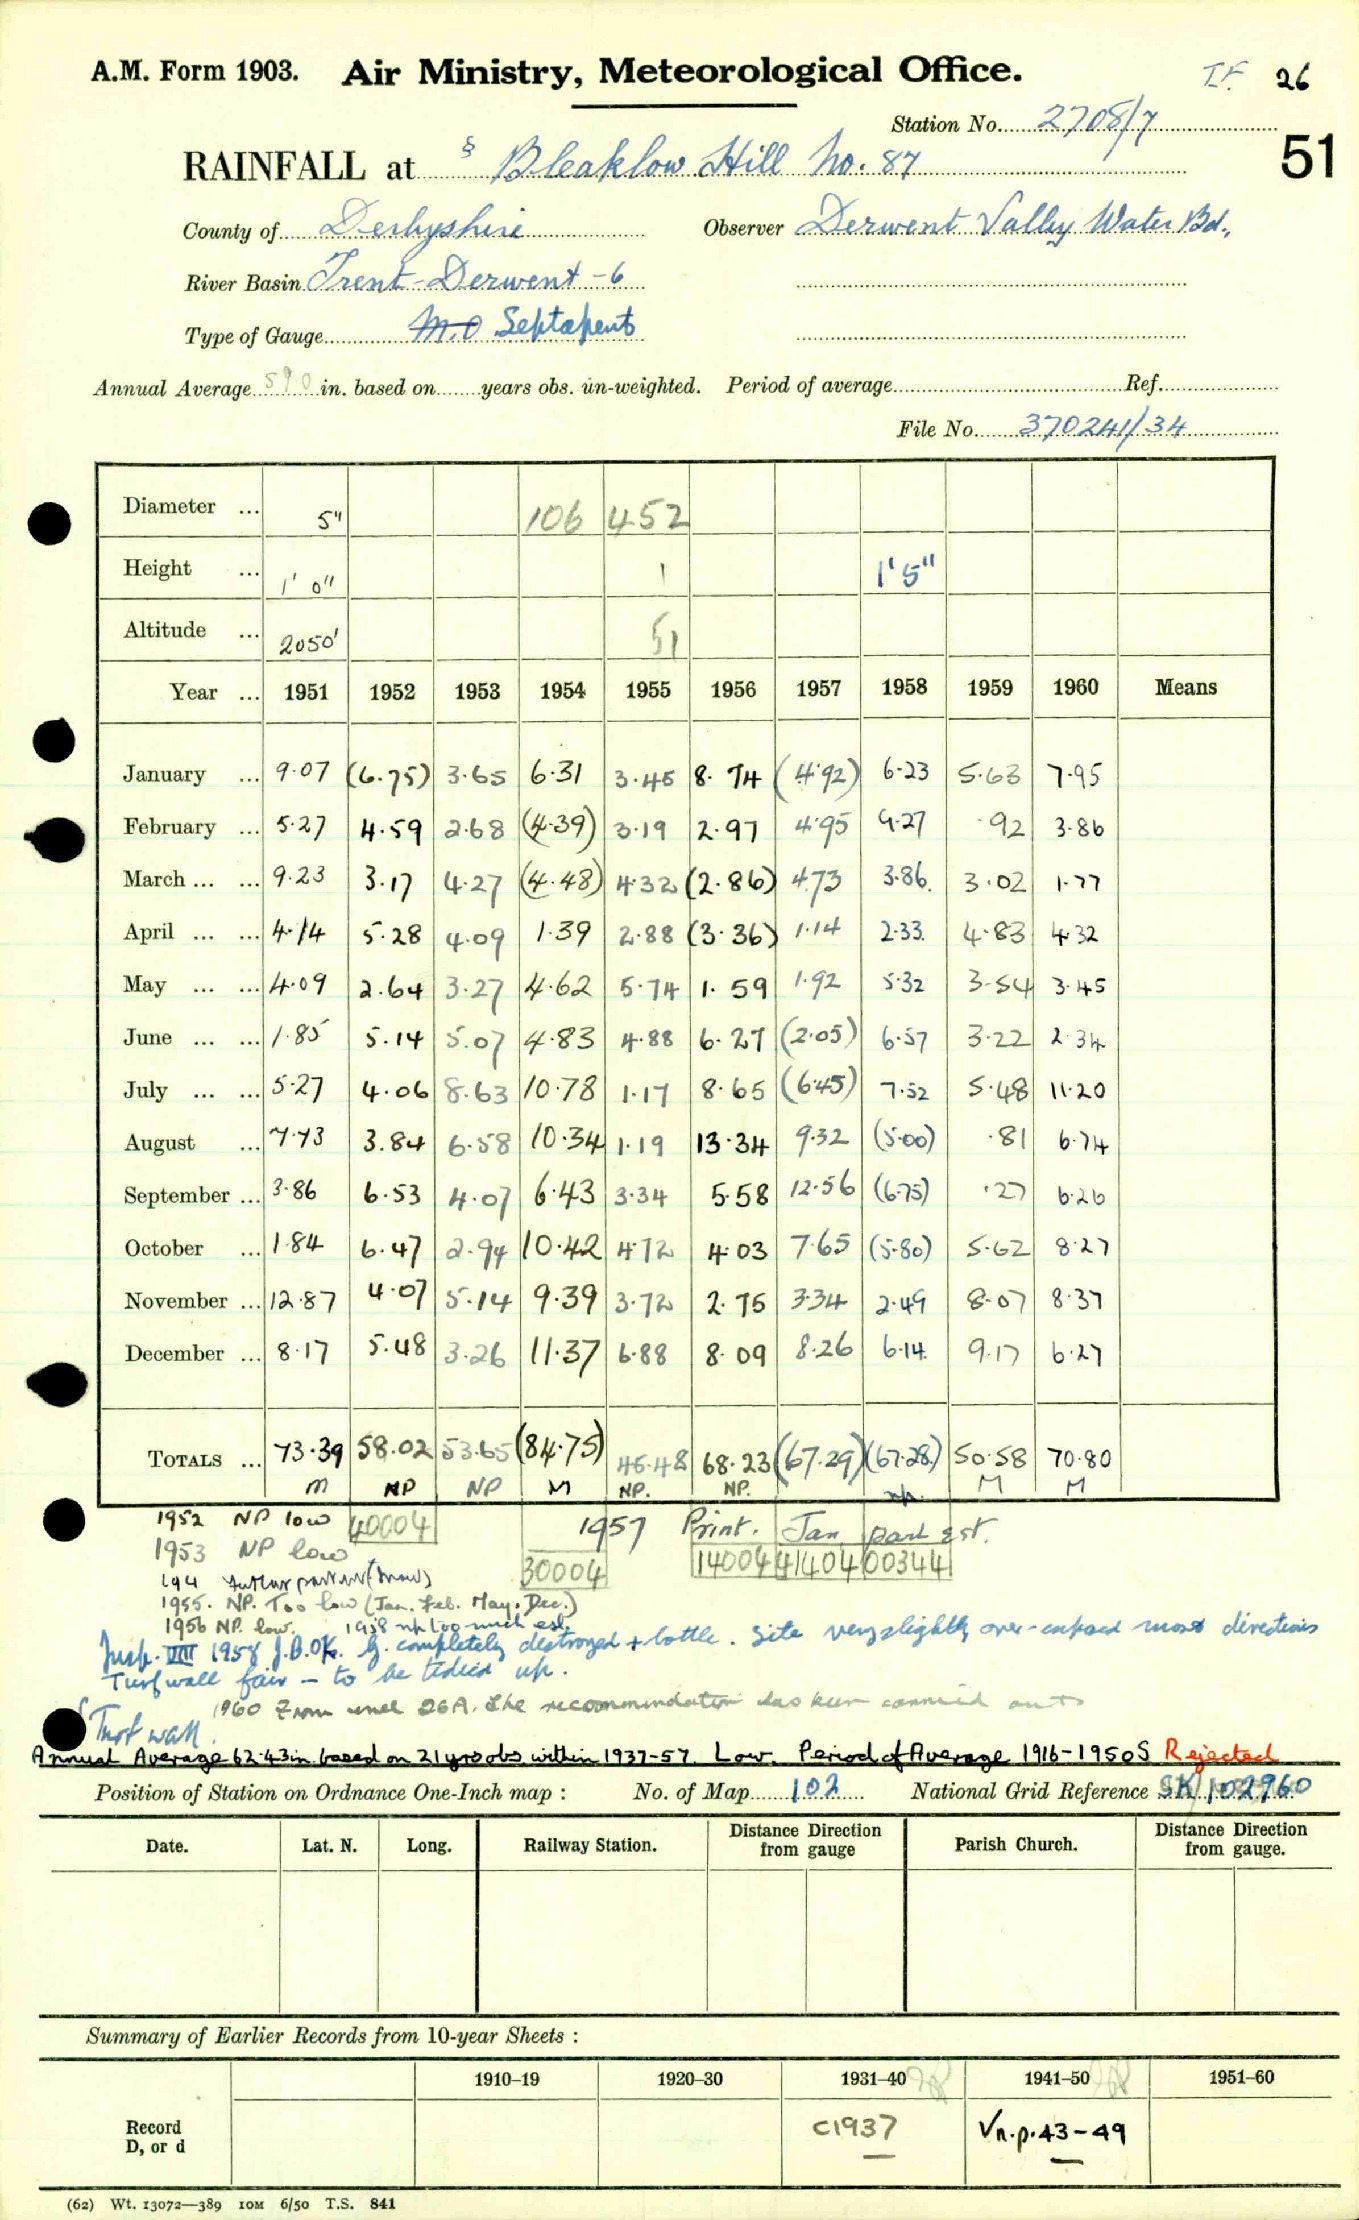 A.M. Form 1903. Air Ministry, Meteorological Office. 26
Station No. 2708/7
51
RAINFALL at § Bleaklow Hill No. 87
County of Derbyshire Observer Derwent Valley Water Bd.,
River Basin Trent-Derwent-6
Type of Gauge M.O Septapent
Annual Average 590 in. based on years obs. un-weighted. Period of average Ref.
File No. 370241/34
Diameter ... 5" 106 452
Height ... 1' 0" 1 1'5"
Altitude ... 2050' 51
Year ... 1951 1952 1953 1954 1955 1956 1957 1958 1959 1960 Means
January ... 9.07 (6.75) 3.65 6.31 3.45 8.74 (4.92) 6.23 5.63 7.95
February ... 5.27 4.59 2.68 (4.39) 3.19 2.97 4.95 9.27 .92 3.86
March ... ... 9.23 3.17 4.27 (4.48) 4.32 (2.86) 4.73 3.86 3.02 1.77
April ... ... 4.14 5.28 4.09 1.39 2.88 (3.36) 1.14 2.33 4.83 4.32
May ... ... 4.09 2.64 3.27 4.62 5.74 1.59 1.92 5.32 3.54 3.45
June ... ... 1.85 5.14 5.07 4.83 4.88 6.27 (2.05) 6.57 3.22 2.34
July ... ... 5.27 4.06 8.63 10.78 1.17 8.65 (6.45) 7.52 5.48 11.20
August ... 7.73 3.84 6.58 10.34 1.19 13.34 9.32 (5.00) .81 6.74
September ... 3.86 6.53 4.07 6.43 3.34 5.58 12.56 (6.75) .27 6.26
October ... 1.84 6.47 2.94 10.42 4.72 4.03 7.65 (5.80) 5.62 8.27
November ... 12.87 4.07 5.14 9.39 3.72 2.75 3.34 2.49 8.07 8.37
December ... 8.17 5.48 3.26 11.37 6.88 8.09 8.26 6.14 9.17 6.27
TOTALS ... 73.39 58.02 53.65 (84.75) 45.48 68.23 (67.29) (67.28) 50.58 70.80
M NP NP M NP. NP. np. M M
1952 NP low 40004 1957 Print. Jan part est.
1953 NP low 30004 14004 41404 00344
1955. NP. Too low (Jan. Feb. May. Dec.)
1956 NP. low. 1958 np too much est.
Insp. VIII 1958 J.B.OK. G. completely destroyed + bottle. Site very slightly over-exposed most directions
Turf wall fair - to be tidied up.
1960 From 26A. The recommendation has been carried out
Turf wall.
Annual Average 62.43in. based on 21 yrs obs within 1937-57. Low. Period of Average 1916-1950S Rejected
Position of Station on Ordnance One-Inch map : No. of Map 102 National Grid Reference SK/102960
Date. Lat. N. Long. Railway Station. Distance Direction from gauge Parish Church. Distance Direction from gauge.
Summary of Earlier Records from 10-year Sheets :
1910-19 1920-30 1931-40 1941-50 1951-60
Record D, or d C1937 Vn.p.43-49
(62) Wt. 13072—389 10M 6/50 T.S. 841